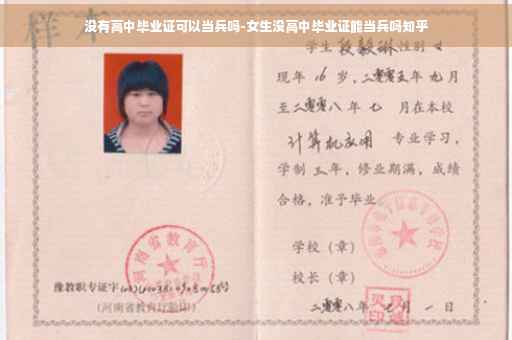 没有高中毕业证可以当兵吗-女生没高中毕业证能当兵吗知乎
样本
学生 段毅琳 性别 女
现年 16 岁，二零零五年 九月
至二零零八 年 七 月在本校
计算机应用 专业学习，
学制 三 年，修业期满，成绩
合格，准予毕业
学校（章）
校长（章）
二零零八年 七 月 一 日
河南省教育厅
豫教职专证字
（河南省教育厅验印）